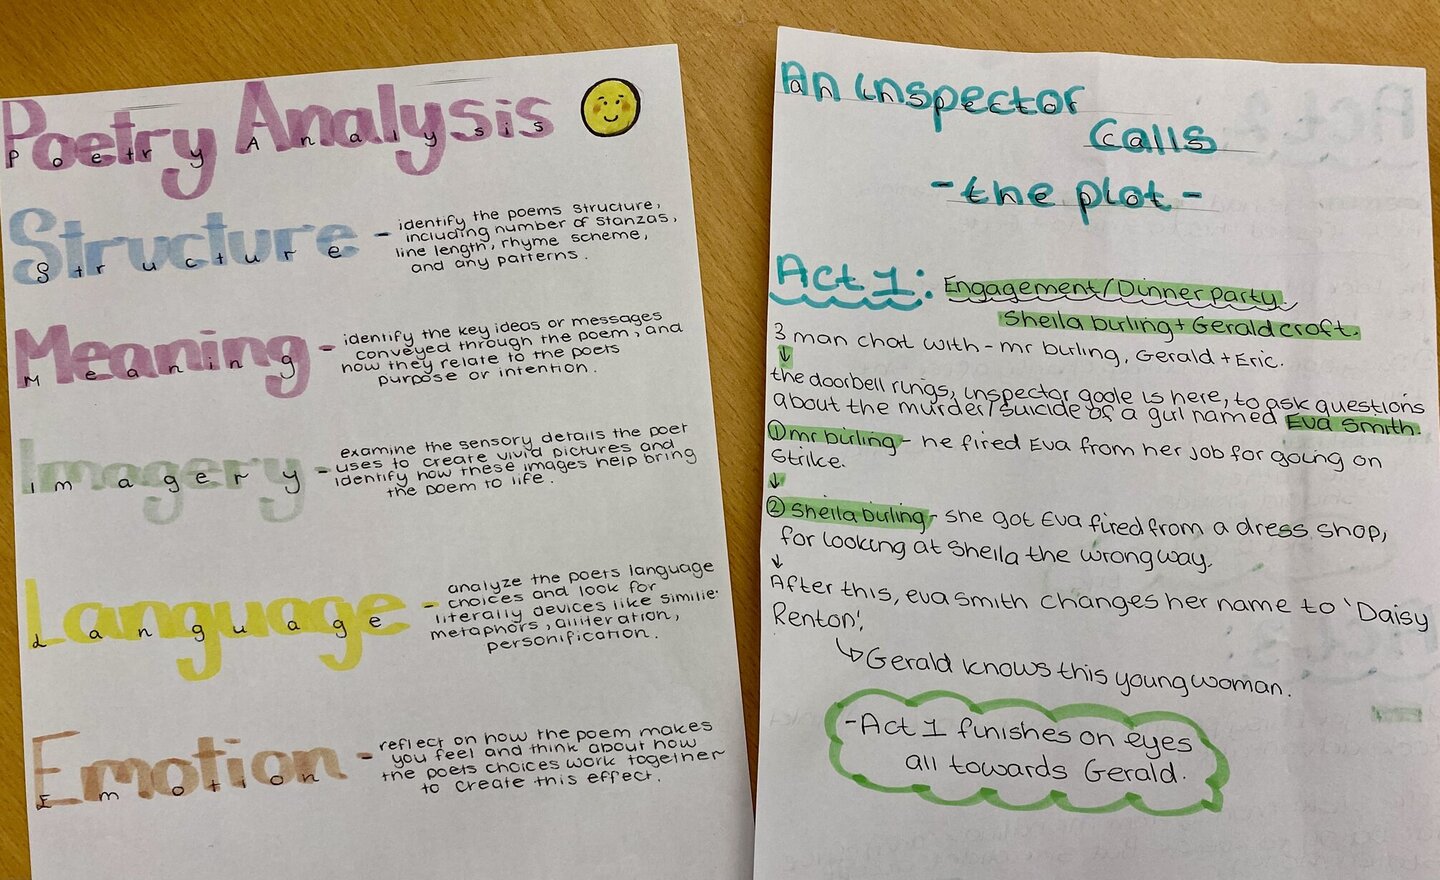 Poetry Analysis
Poetry Analysis
Structure
Structure
- identify the poems structure,
including number of stanzas,
line length, rhyme scheme,
and any patterns.
Meaning
Meaning
- identify the key ideas or messages
conveyed through the poem, and
how they relate to the poets
purpose or intention.
Imagery
Imagery
- examine the sensory details the poet
uses to create vivid pictures and
identify how these images help bring
the poem to life.
Language
Language
- analyze the poets language
choices and look for
literally devices like similie,
metaphors, alliteration,
personification.
Emotion
Emotion
- reflect on how the poem makes
you feel and think about how
the poets choices work together
to create this effect.
An inspector
Calls
- the plot -
Act 1: Engagement/Dinner party.
Sheila birling + Gerald croft.
3 man chat with - mr birling, Gerald + Eric.
↓
the doorbell rings, inspector goole is here, to ask questions
about the murder/suicide of a girl named Eva Smith.
① mr birling - he fired Eva from her job for going on
strike.
↓
② Sheila birling - she got Eva fired from a dress shop,
for looking at Sheila the wrong way.
↓
After this, eva smith changes her name to 'Daisy
Renton'.
↳ Gerald knows this young woman.
- Act 1 finishes on eyes
all towards Gerald.